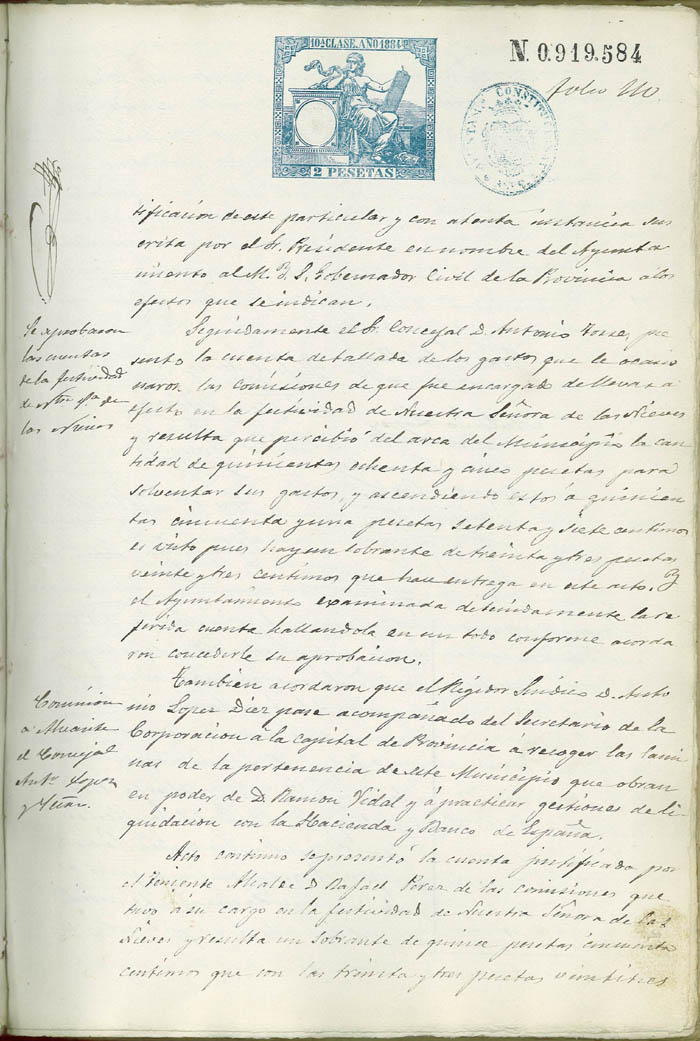 10ª CLASE. AÑO 1884
2 PESETAS
N. 0.919.584
folio
CONSTITU
tificacion de este particular y con atenta instancia sus
crita por el Sr. Presidente en nombre del Ayunta
miento al M. Y. S. Gobernador Civil de la Provincia a los
efectos que se indican.
Se aprobaron
las cuentas
de la festividad
de Ntra Sra de
las Nieves
Seguidamente el Sr. Concejal D. Antonio pre
sento la cuenta detallada de los gastos que le ocasio
naron las comisiones de que fue encargado de llevar a
efecto en la festividad de Nuestra Señora de las Nieves
y resulta que percibió del arca del Municipio la can
tidad de quinientas ochenta y cinco pesetas para
solventar sus gastos, y ascendiendo estos a quinien
tas cincuenta y una pesetas setenta y siete centimos
es visto pues hay un sobrante de treinta y tres pesetas
veinte y tres centimos que hace entrega en este acto. Y
el Ayuntamiento examinada detenidamente la re
ferida cuenta hallandola en un todo conforme acorda
ron concederle su aprobacion.
Comision
a Alicante
el Concejal
Antº Lopez
y Secrio.
Tambien acordaron que el Regidor Sindico D. Anto
nio Lopez Diez pase acompañado del Secretario de la
Corporacion a la capital de Provincia a recoger las lami
nas de la pertenencia de este Municipio que obran
en poder de D. Ramon Vidal y á practicar gestiones de li
quidacion con la Hacienda y Banco de España.
Acto continuo se presentó la cuenta justificada por
el Teniente Alcalde D. Rafael Perez de las comisiones que
tuvo á su cargo en la festividad de Nuestra Señora de las
Nieves y resulta un sobrante de quince pesetas cincuenta
centimos que con las treinta y tres pesetas veintitres